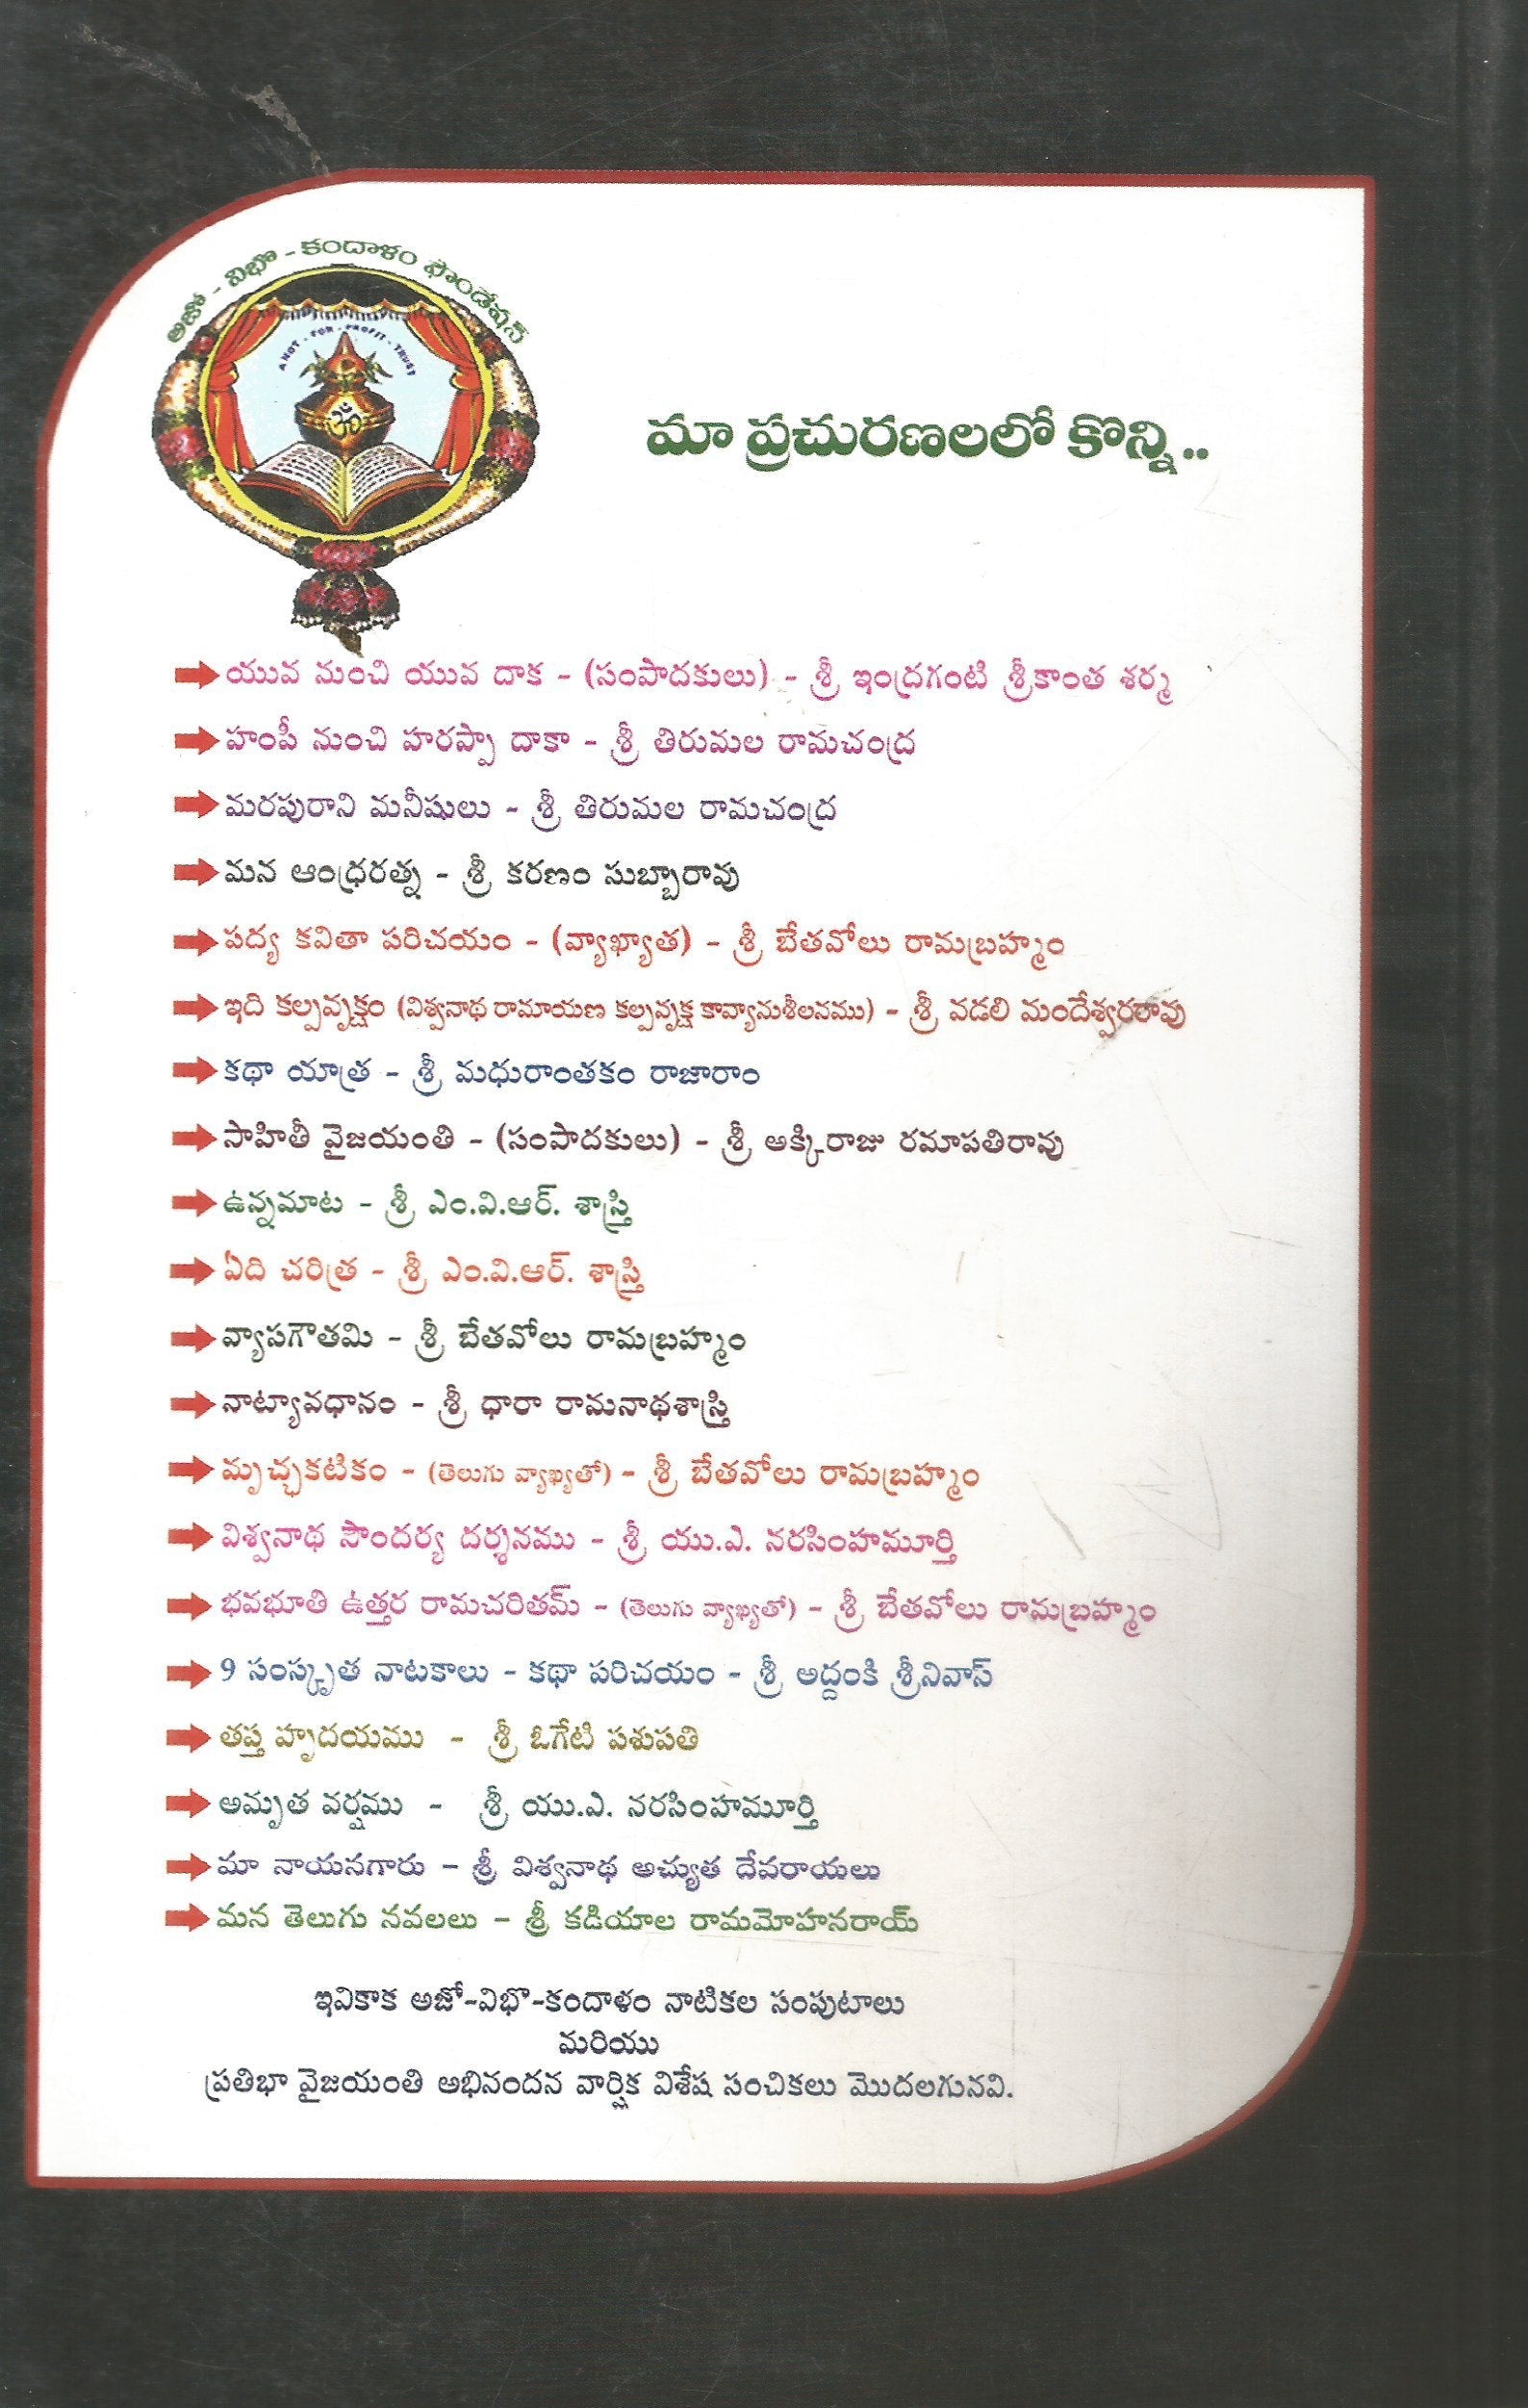 అజో - విభొ - కందాళం ఫౌండేషన్
A NOT - FOR - PROFIT - TRUST
మా ప్రచురణలలో కొన్ని..
యువ నుంచి యువ దాక - (సంపాదకులు) - శ్రీ ఇంద్రగంటి శ్రీకాంత శర్మ
హంపీ నుంచి హరప్పా దాకా - శ్రీ తిరుమల రామచంద్ర
మరపురాని మనీషులు - శ్రీ తిరుమల రామచంద్ర
మన ఆంధ్రరత్న - శ్రీ కరణం సుబ్బారావు
పద్య కవితా పరిచయం - (వ్యాఖ్యాత) - శ్రీ బేతవోలు రామబ్రహ్మం
ఇది కల్పవృక్షం (విశ్వనాథ రామాయణ కల్పవృక్ష కావ్యానుశీలనము) - శ్రీ వడలి మందేశ్వరరావు
కథా యాత్ర - శ్రీ మధురాంతకం రాజారాం
సాహితీ వైజయంతి - (సంపాదకులు) - శ్రీ అక్కిరాజు రమాపతిరావు
ఉన్నమాట - శ్రీ ఎం.వి.ఆర్. శాస్త్రి
ఏది చరిత్ర - శ్రీ ఎం.వి.ఆర్. శాస్త్రి
వ్యాసగౌతమి - శ్రీ బేతవోలు రామబ్రహ్మం
నాట్యావధానం - శ్రీ ధారా రామనాథశాస్త్రి
మృచ్ఛకటికం - (తెలుగు వ్యాఖ్యతో) - శ్రీ బేతవోలు రామబ్రహ్మం
విశ్వనాథ సౌందర్య దర్శనము - శ్రీ యు.ఎ. నరసింహమూర్తి
భవభూతి ఉత్తర రామచరితమ్ - (తెలుగు వ్యాఖ్యతో) - శ్రీ బేతవోలు రామబ్రహ్మం
9 సంస్కృత నాటకాలు - కథా పరిచయం - శ్రీ అద్దంకి శ్రీనివాస్
తప్త హృదయము - శ్రీ ఓగేటి పశుపతి
అమృత వర్షము - శ్రీ యు.ఎ. నరసింహమూర్తి
మా నాయనగారు - శ్రీ విశ్వనాథ అచ్యుత దేవరాయలు
మన తెలుగు నవలలు - శ్రీ కడియాల రామమోహనరాయ్
ఇవికాక అజో-విభొ-కందాళం నాటికల సంపుటాలు
మరియు
ప్రతిభా వైజయంతి అభినందన వార్షిక విశేష సంచికలు మొదలగునవి.